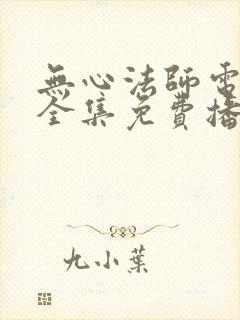 無心法師電
全集免費播
九小葉